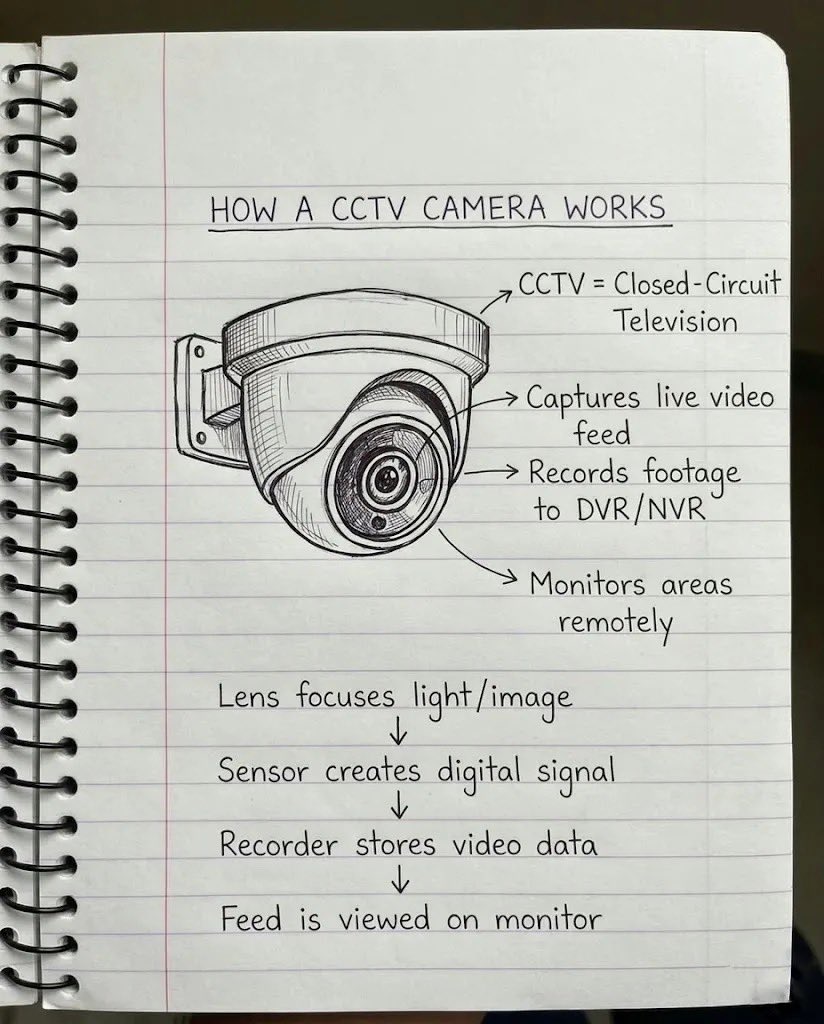 HOW A CCTV CAMERA WORKS
CCTV = Closed-Circuit
Television
Captures live video
feed
Records footage
to DVR/NVR
Monitors areas
remotely
Lens focuses light/image
↓
Sensor creates digital signal
↓
Recorder stores video data
↓
Feed is viewed on monitor